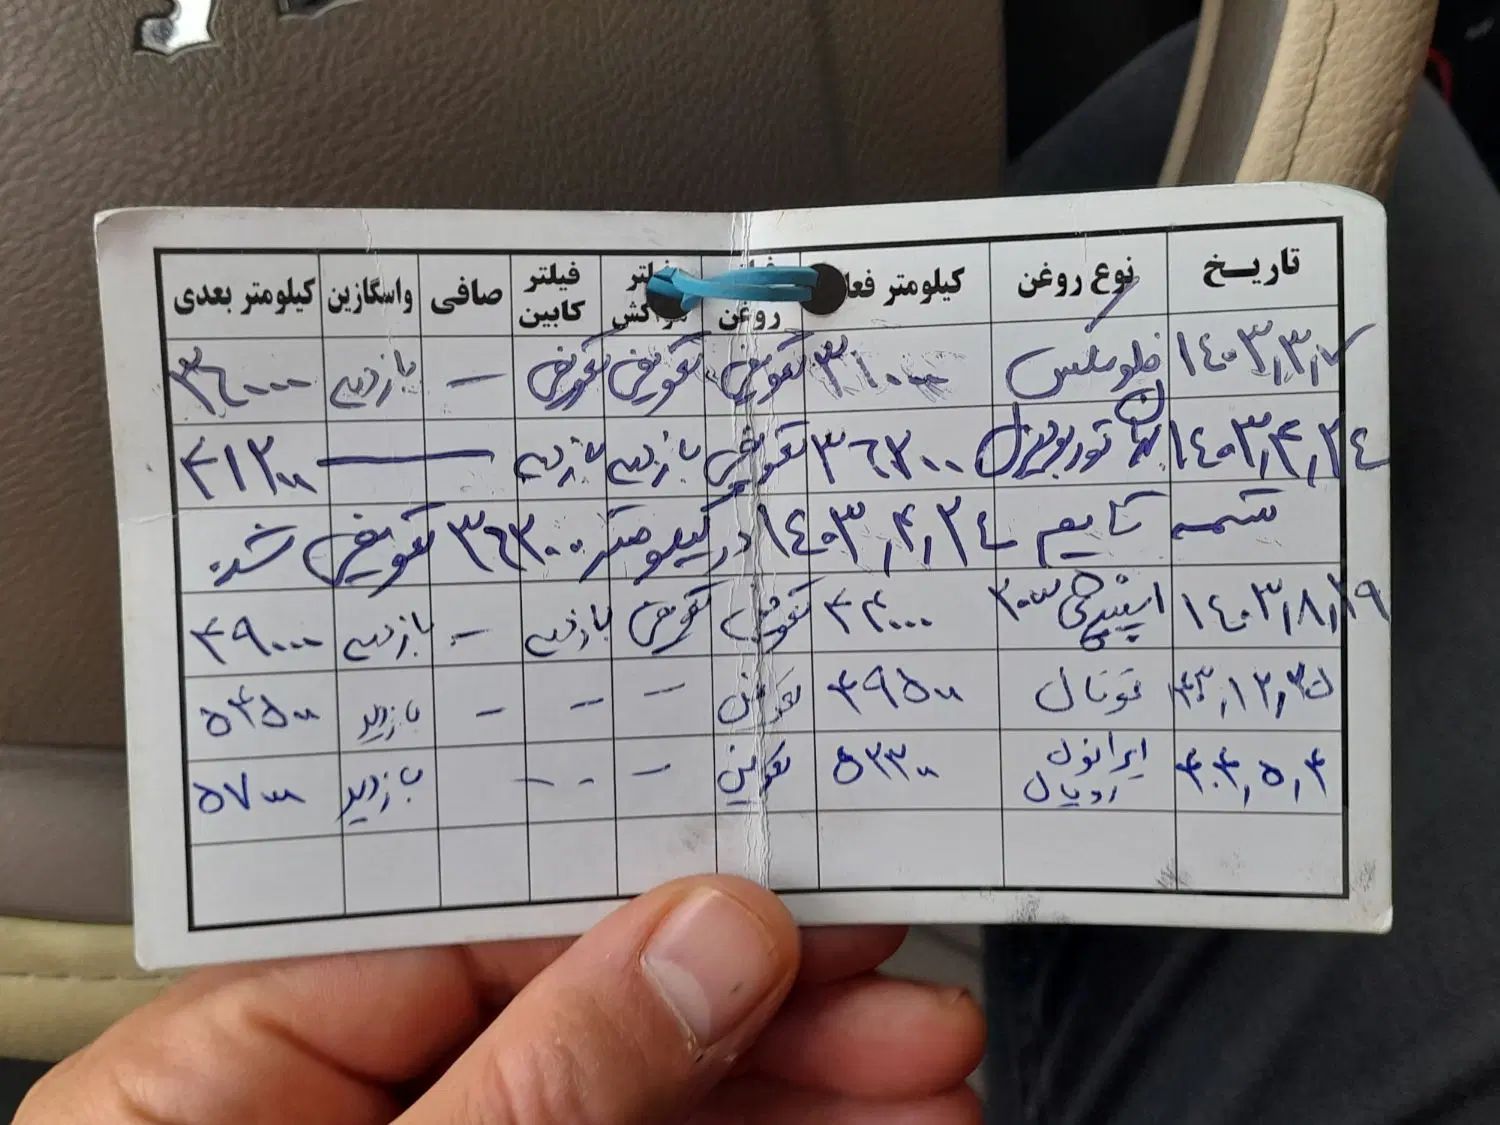 تاریخ نوع روغن کیلومتر فعا روغن فیلتر هواکش فیلتر کابین صافی واسگازین کیلومتر بعدی
۱۴۰۳٫۳٫۷ فلومکس ۳۱۰۰۰ تعویض تعویض تعویض — بازدید ۳۶۰۰۰
۱۴۰۳٫۴٫۲۴ توربودیزل ۳۶۳۰۰ تعویض بازدید بازدید — ۴۱۳۰۰
تسمه تایم ۱۴۰۳٫۴٫۲۴ در کیلومتر ۳۶۳۰۰ تعویض شد.
۱۴۰۳٫۸٫۱۹ اسپیدی ۴۴۰۰۰ تعویض تعویض بازدید — بازدید ۴۹۰۰۰
توتال ۴۹۵۰۰ تعویض — — — بازدید ۵۴۵۰۰
۴۰۴٫۵٫۴ ایرانول رویال ۵۳۳۰۰ تعویض — — بازدید ۵۷۰۰۰